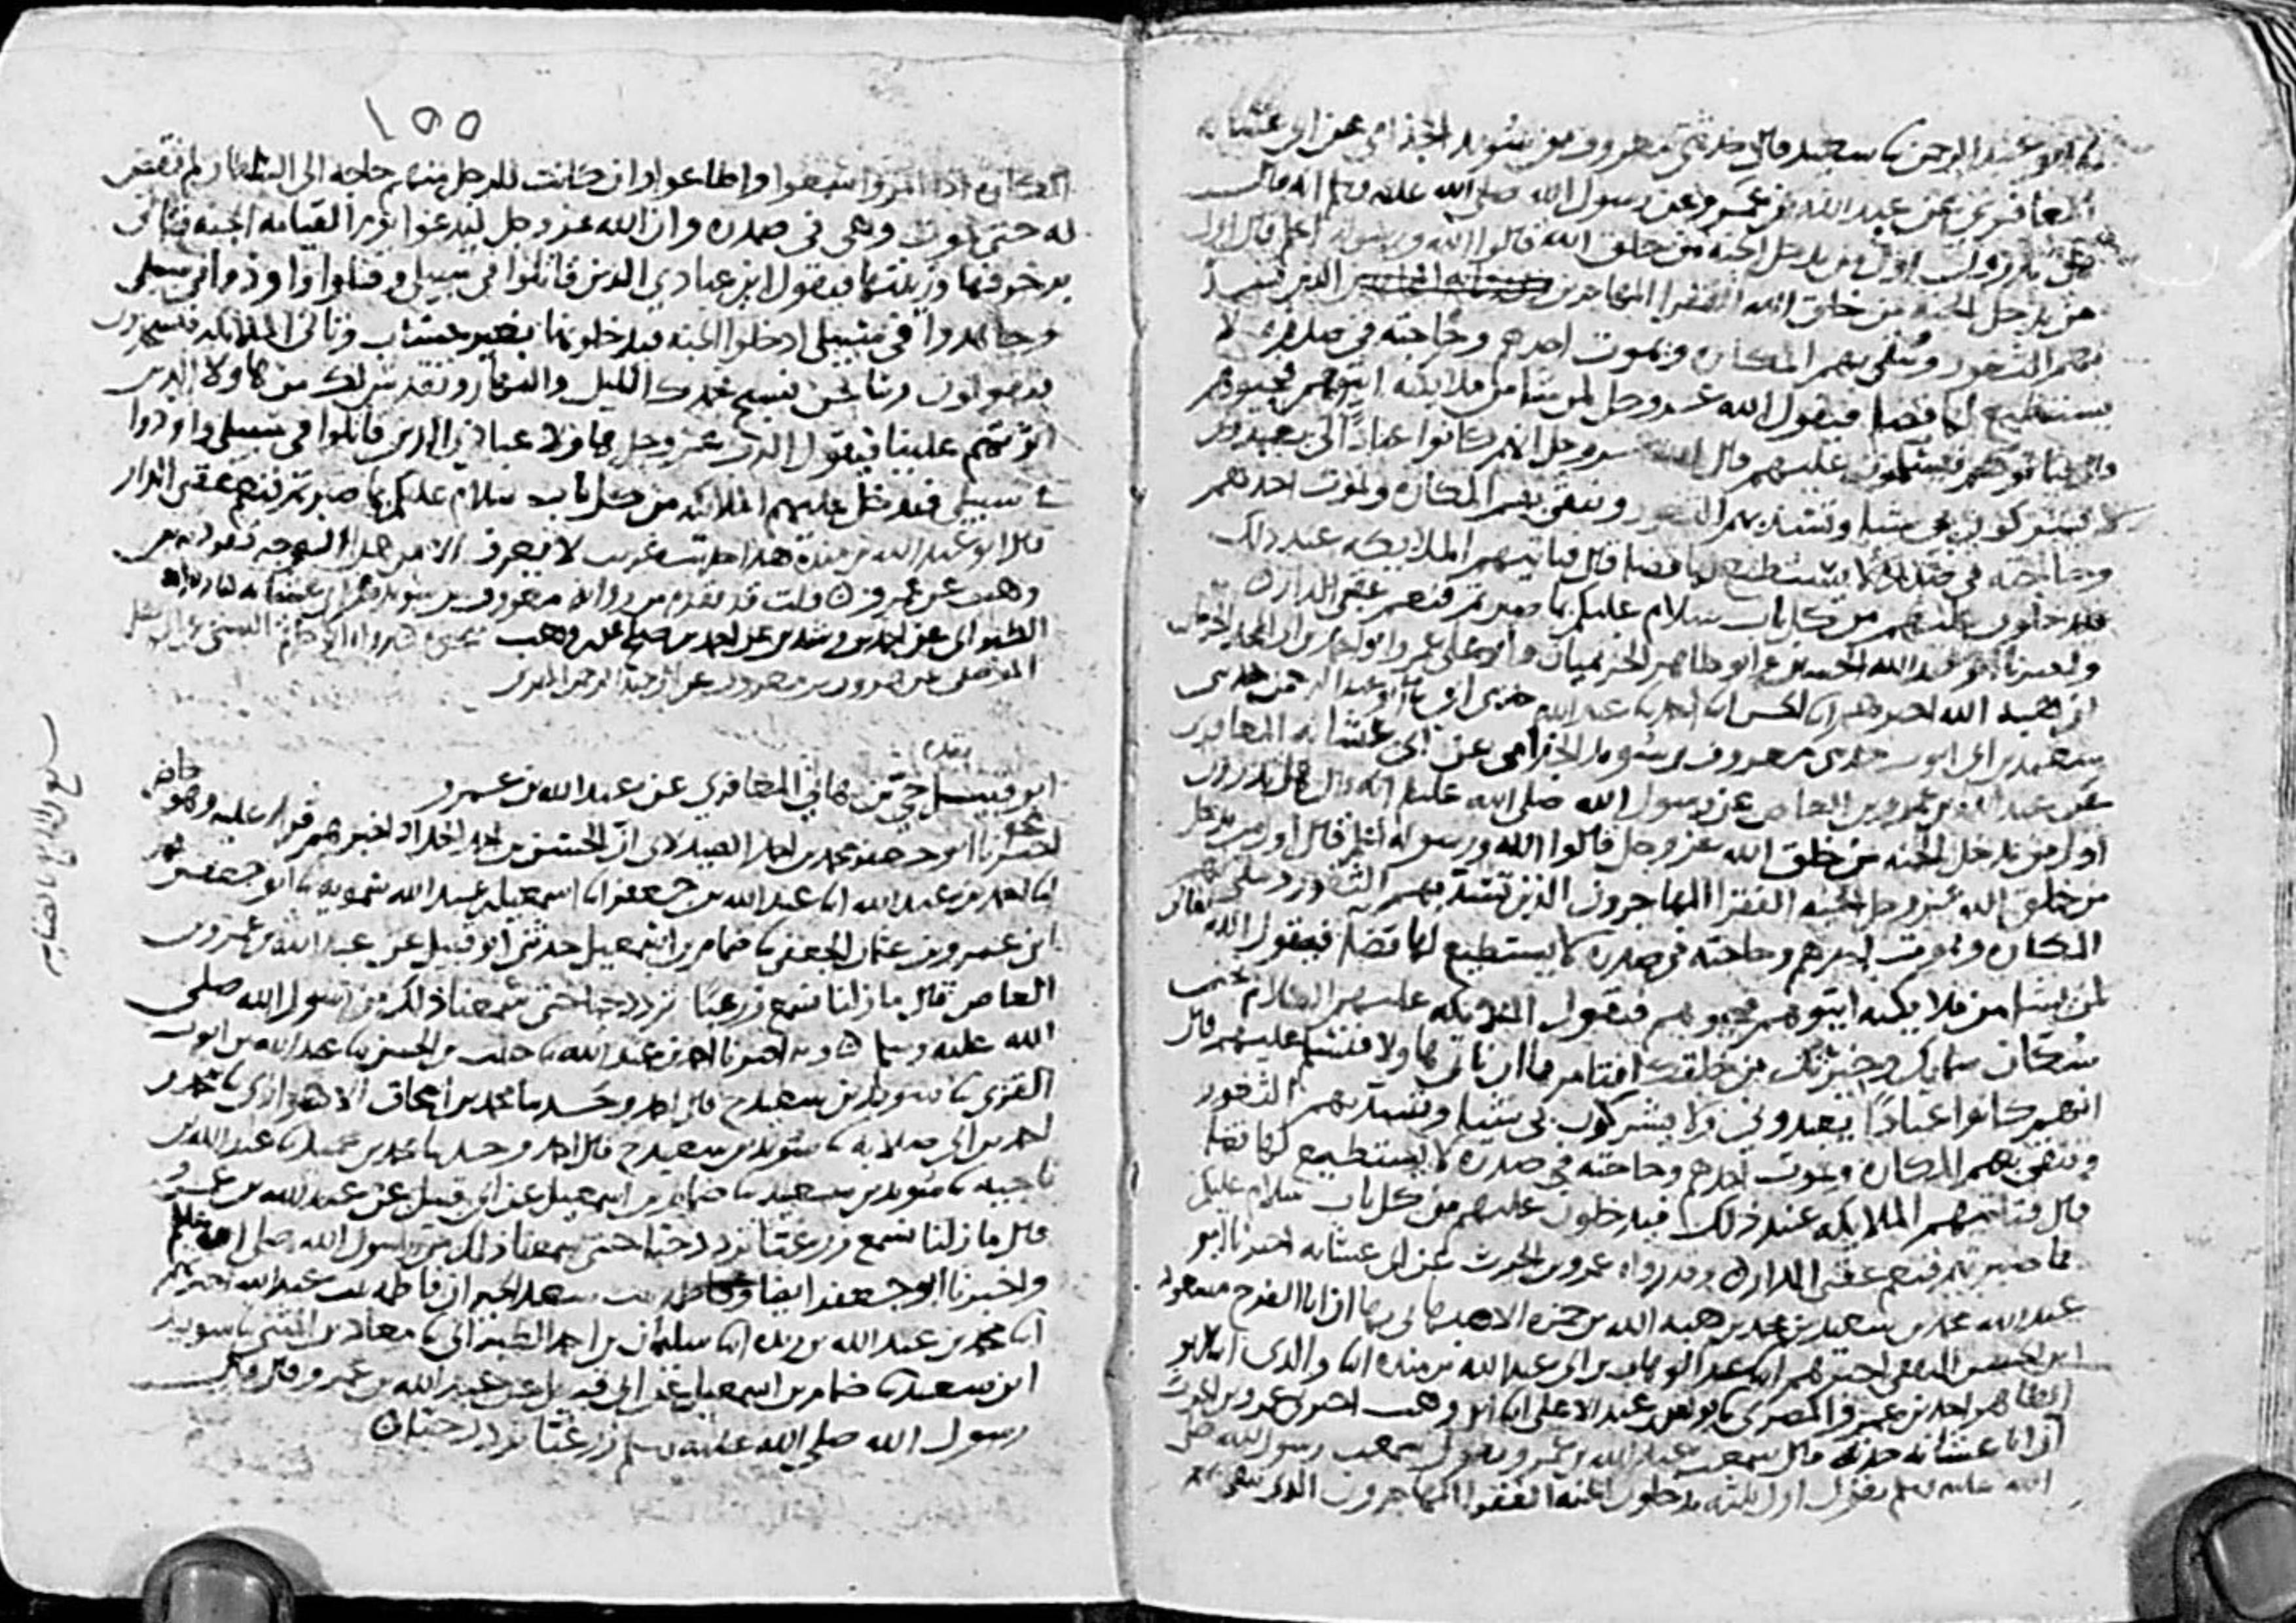 ثنا ابو عبد الرحمن ثنا سعيد قال حدثني معروف بن سويد الجذامي عن ابي عشانة
المعافري عن عبد الله بن عمرو عن رسول الله صلى الله عليه وسلم انه قال
هل تدرون اول من يدخل الجنه من خلق الله قالوا الله ورسوله اعلم قال اول
من يدخل الجنه من خلق الله الفقرا المهاجرين الذين تسد
بهم الثغور ويتقى بهم المكاره ويموت احدهم وحاجته في صدره لا
يستطيع لها قضا فيقول الله عز وجل لمن يشا من ملايكته ايتوهم فحيوهم
فياتوهم فيسلمون عليهم قال الله عز وجل انهم كانوا عبادا لي يعبدوني
لا يشركون بي شيا وتسد بهم الثغور وتتقى بهم المكاره ويموت احدهم
وحاجته في صدره لا يستطيع لها قضا قال فتاتيهم الملايكه عند ذلك
فيدخلون عليهم من كل باب سلام عليكم بما صبرتم فنعم عقبى الدار
واخبرنا ابو عبد الله الحسين وابو طاهر الحريميان وابو علي
ان هبة الله اخبرهم ابنا الحسن ابنا احمد ثنا عبد الله حدثني ابي ثنا ابو عبد الرحمن حدثني
سعيد بن ابي ايوب حدثني معروف بن سويد الجذامي عن ابي عشانه المعافري
عن عبد الله بن عمرو بن العاص عن رسول الله صلى الله عليه انه قال هل تدرون
اول من يدخل الجنه من خلق الله عز وجل قالوا الله ورسوله اعلم قال اول من يدخل
من خلق الله عز وجل الجنه الفقرا المهاجرون الذين تسد بهم الثغور وتتقى بهم
المكاره ويموت احدهم وحاجته في صدره لا يستطيع لها قضا فيقول الله تعالى
لمن يشا من ملايكته ايتوهم فحيوهم فتقول الملايكه عليهم السلام نحن
سكان سمايك وخيرتك من خلقك افتامرنا ان ناتي هاولا فنسلم عليهم قال
انهم كانوا عبادا يعبدوني ولا يشركون بي شيا وتسد بهم الثغور
وتتقى بهم المكاره ويموت احدهم وحاجته في صدره لا يستطيع لها قضا
قال فتاتيهم الملايكه عند ذلك فيدخلون عليهم من كل باب سلام عليكم
بما صبرتم فنعم عقبى الدار وقد رواه عمرو بن الحرث عن ابي عشانه اخبرنا ابو
عبد الله محمد بن سعيد بن محمد بن هبه الله بن حمزه الاصبهاني بها ان ابا الفرج مسعود
ابن الحسن الثقفي اخبرهم ابنا عبد الوهاب بن ابي عبد الله بن منده ابنا والدي ابنا ابو
الطاهر احمد بن عمرو المصري ثنا يونس بن عبد الاعلى ابنا ابن وهب اخبرني عمرو بن الحرث
ان ابا عشانه حدثه قال سمعت عبد الله بن عمرو يقول سمعت رسول الله صلى
الله عليه وسلم يقول اول ثلثه يدخلون الجنه الفقرا المهاجرون الذين تتقى بهم
١٥٥
المكاره اذا امروا سمعوا واطاعوا وان كانت للرجل منهم حاجه الى السلطان لم تقض
له حتى يموت وهي في صدره وان الله عز وجل ليدعوا يوم القيامه الجنه فتاتي
بزخرفها وزينتها فيقول اين عبادي الذين قاتلوا في سبيلي وقتلوا واوذوا في سبيلي
وجاهدوا في سبيلي ادخلوا الجنه فيدخلونها بغير حساب وتاتي الملائكه فيسجدون
فيقولون ربنا نحن نسبح بحمدك الليل والنهار ونقدس لك من هاولا الذين
اثرتهم علينا فيقول الرب عز وجل هاولا عبادي الذين قاتلوا في سبيلي واوذوا
في سبيلي فتدخل عليهم الملائكه من كل باب سلام عليكم بما صبرتم فنعم عقبى الدار
قال ابو عبد الله بن منده هذا حديث غريب لا يعرف الا من هذا الوجه تفرد به ابن
وهب عن عمرو قلت قد تقدم من رواية معروف بن سويد عن ابي عشانه
الطبراني عن احمد بن رشدين عن احمد بن صالح عن ابن وهب
ابو قبيل حي بن هاني المعافري عن عبد الله بن عمرو
اخبرنا ابو جعفر محمد بن احمد الصيدلاني ان الحسن بن احمد الحداد اخبرهم قراة عليه وهو حاضر
ابنا احمد بن عبد الله ابنا عبد الله بن جعفر ابنا اسمعيل بن عبد الله سمويه ثنا ابو جعفر
ابن عمرو بن عثمان الجعفي ثنا ضمام بن اسمعيل حدثني ابو قبيل عن عبد الله بن عمرو بن
العاص قال ما زلنا نسمع زر غبا تزدد حبا حتى سمعنا ذلك من رسول الله صلى
الله عليه وسلم وبه اخبرنا احمد بن عبد الله ثنا حبيب بن الحسن ثنا عبد الله بن ايوب
القزي ثنا سويد بن سعيد ح قال احمد وحدثنا محمد بن اسحاق الاهوازي ثنا محمد بن
احمد بن ابي صلايه ثنا سويد بن سعيد ح قال احمد وحدثنا محمد بن حميد ثنا عبد الله بن
ناجيه ثنا سويد بن سعيد ثنا ضمام بن اسمعيل عن ابي قبيل عن عبد الله بن عمرو
قال ما زلنا نسمع زر غبا تزدد حبا حتى سمعنا ذلك من رسول الله صلى الله عليه وسلم
واخبرنا ابو جعفر ايضا وفاطمه بنت سعد الخير ان فاطمه بنت عبد الله اخبرتهم
ابنا محمد بن عبد الله بن ريذه ابنا سليمان بن احمد الطبراني ثنا معاذ بن المثنى ثنا سويد
ابن سعيد ثنا ضمام بن اسمعيل عن ابي قبيل عن عبد الله بن عمرو قال قال
رسول الله صلى الله عليه وسلم زر غبا تزدد حبا